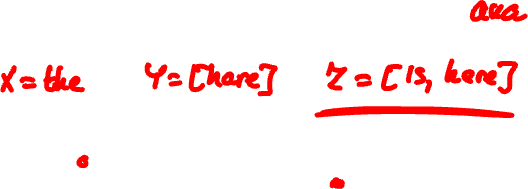 X=the Y=[hare] Z=[is, here]